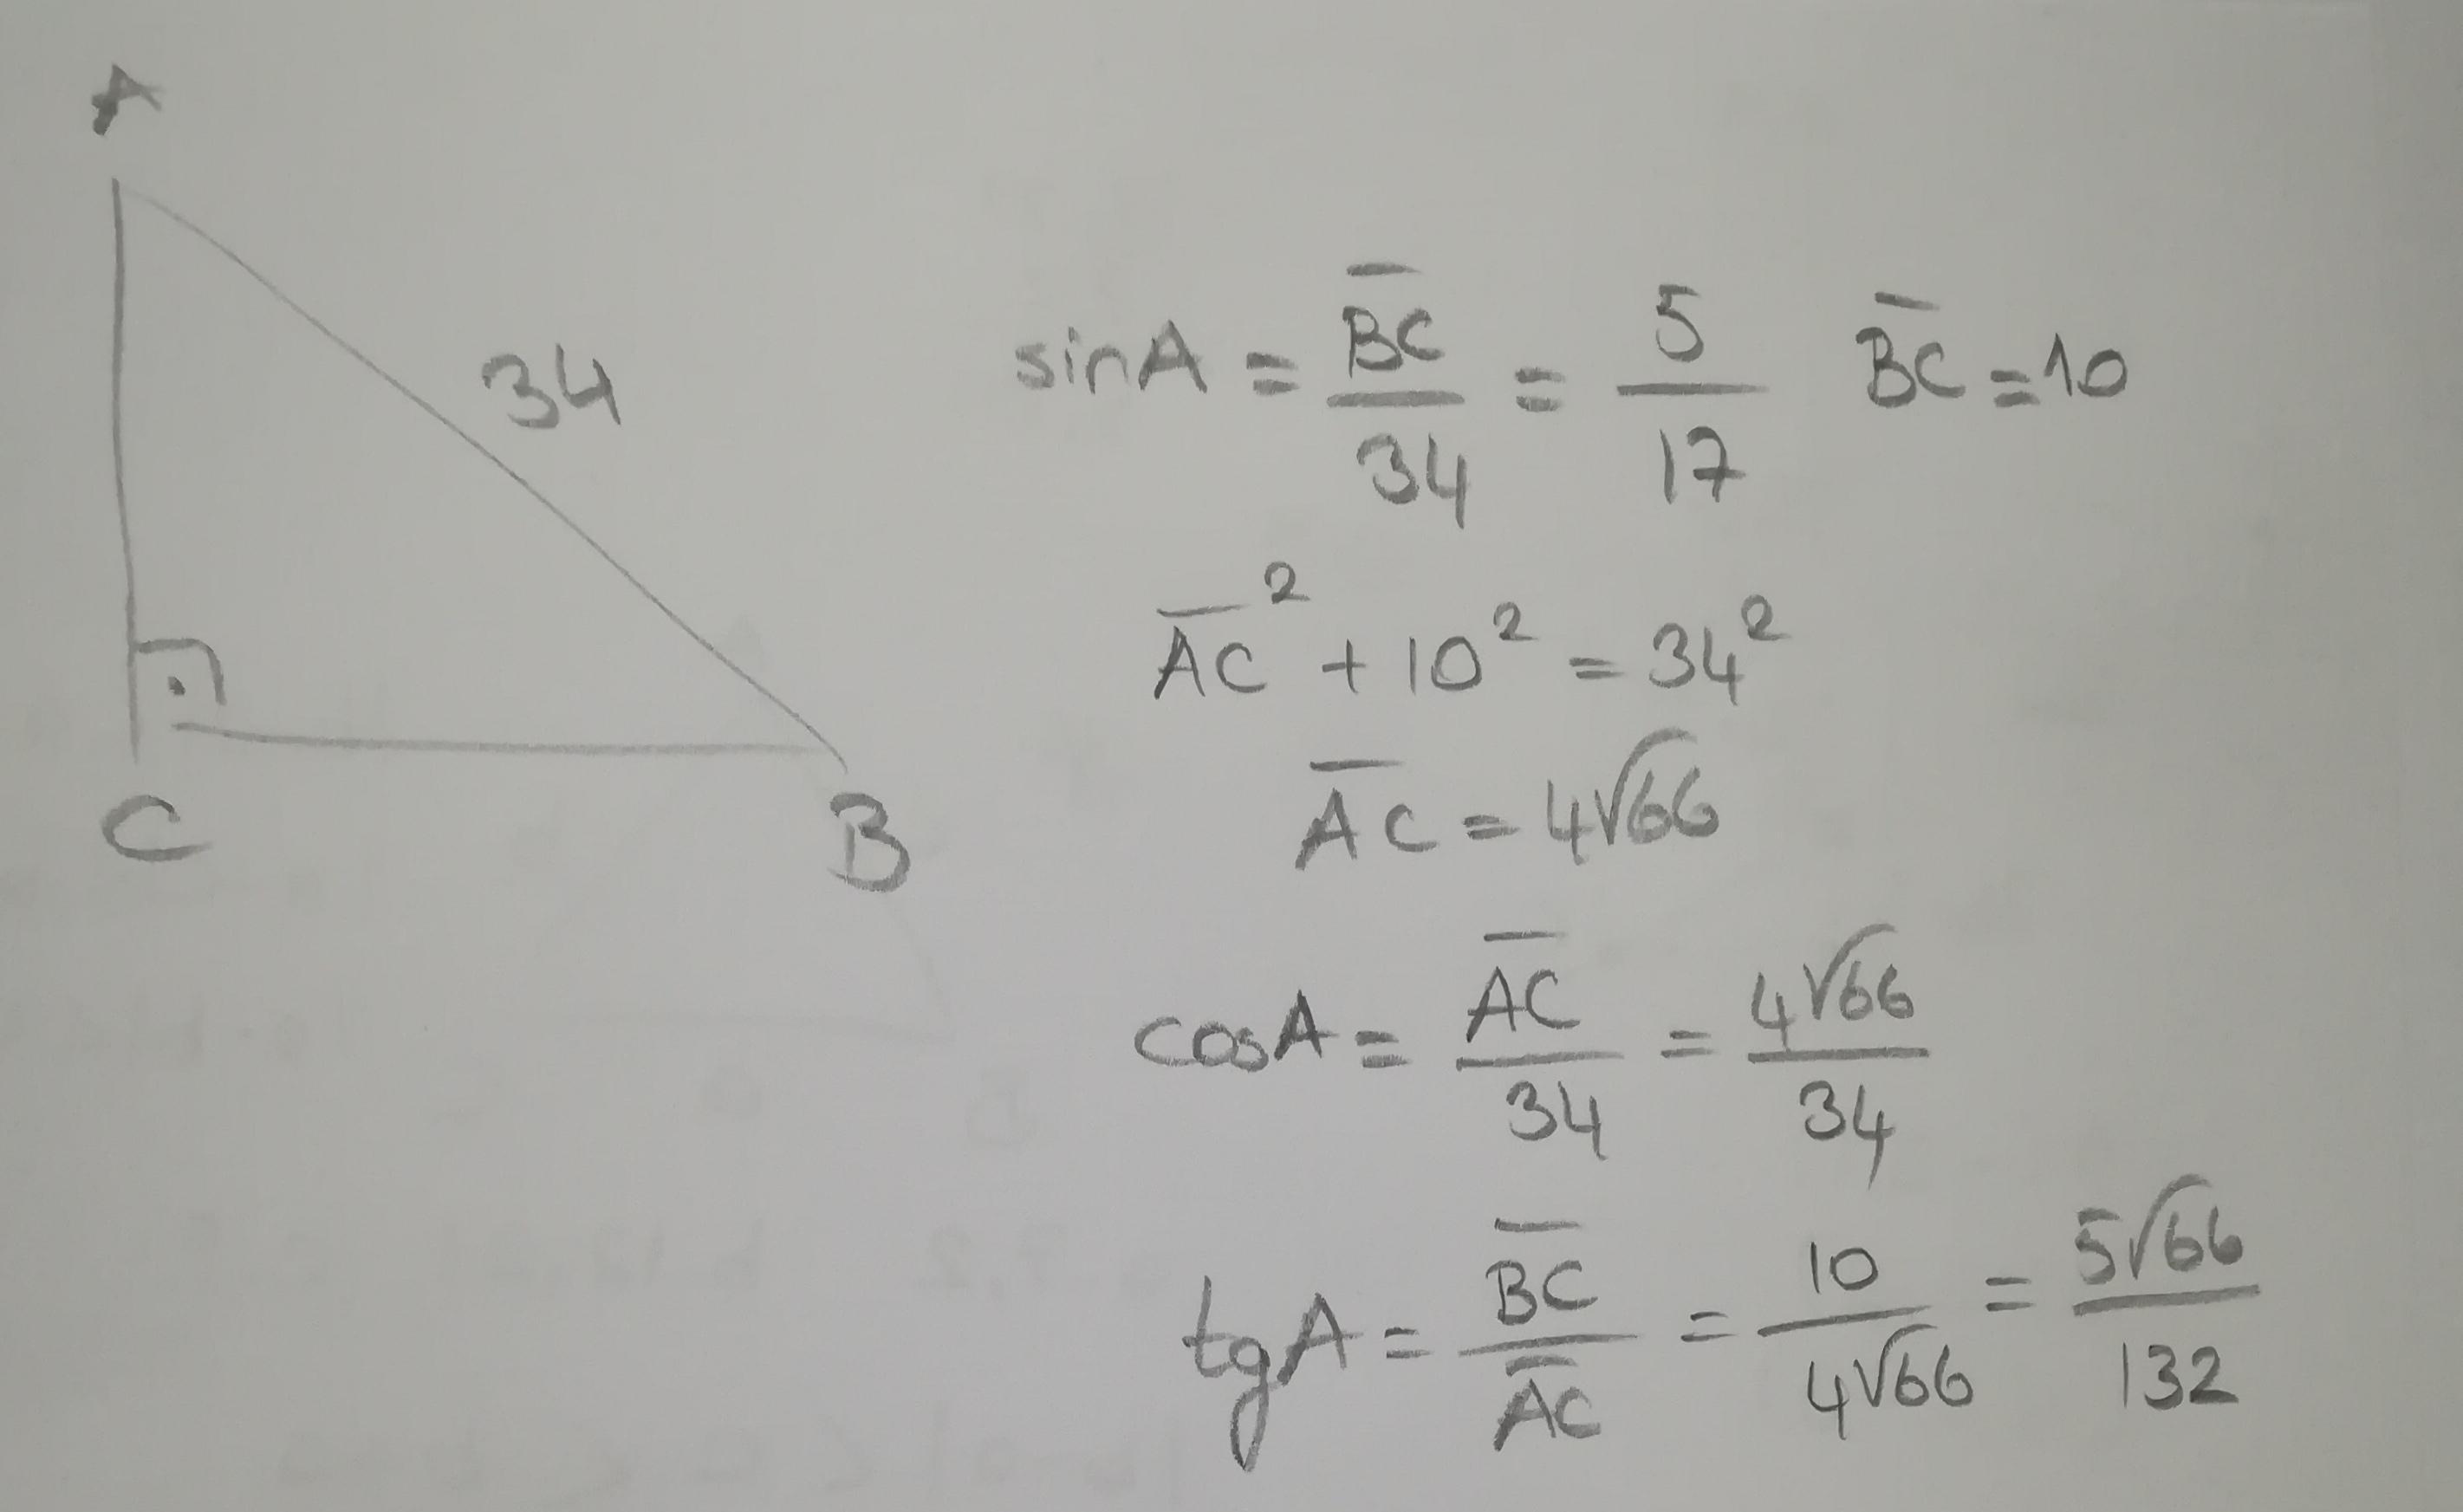 A
34
C
B
sinA = B̅C̅/34 = 5/17 B̅C̅ = 10
A̅C̅² + 10² = 34²
A̅C̅ = 4√66
cosA = A̅C̅/34 = 4√66/34
tgA = B̅C̅/A̅C̅ = 10/4√66 = 5√66/132